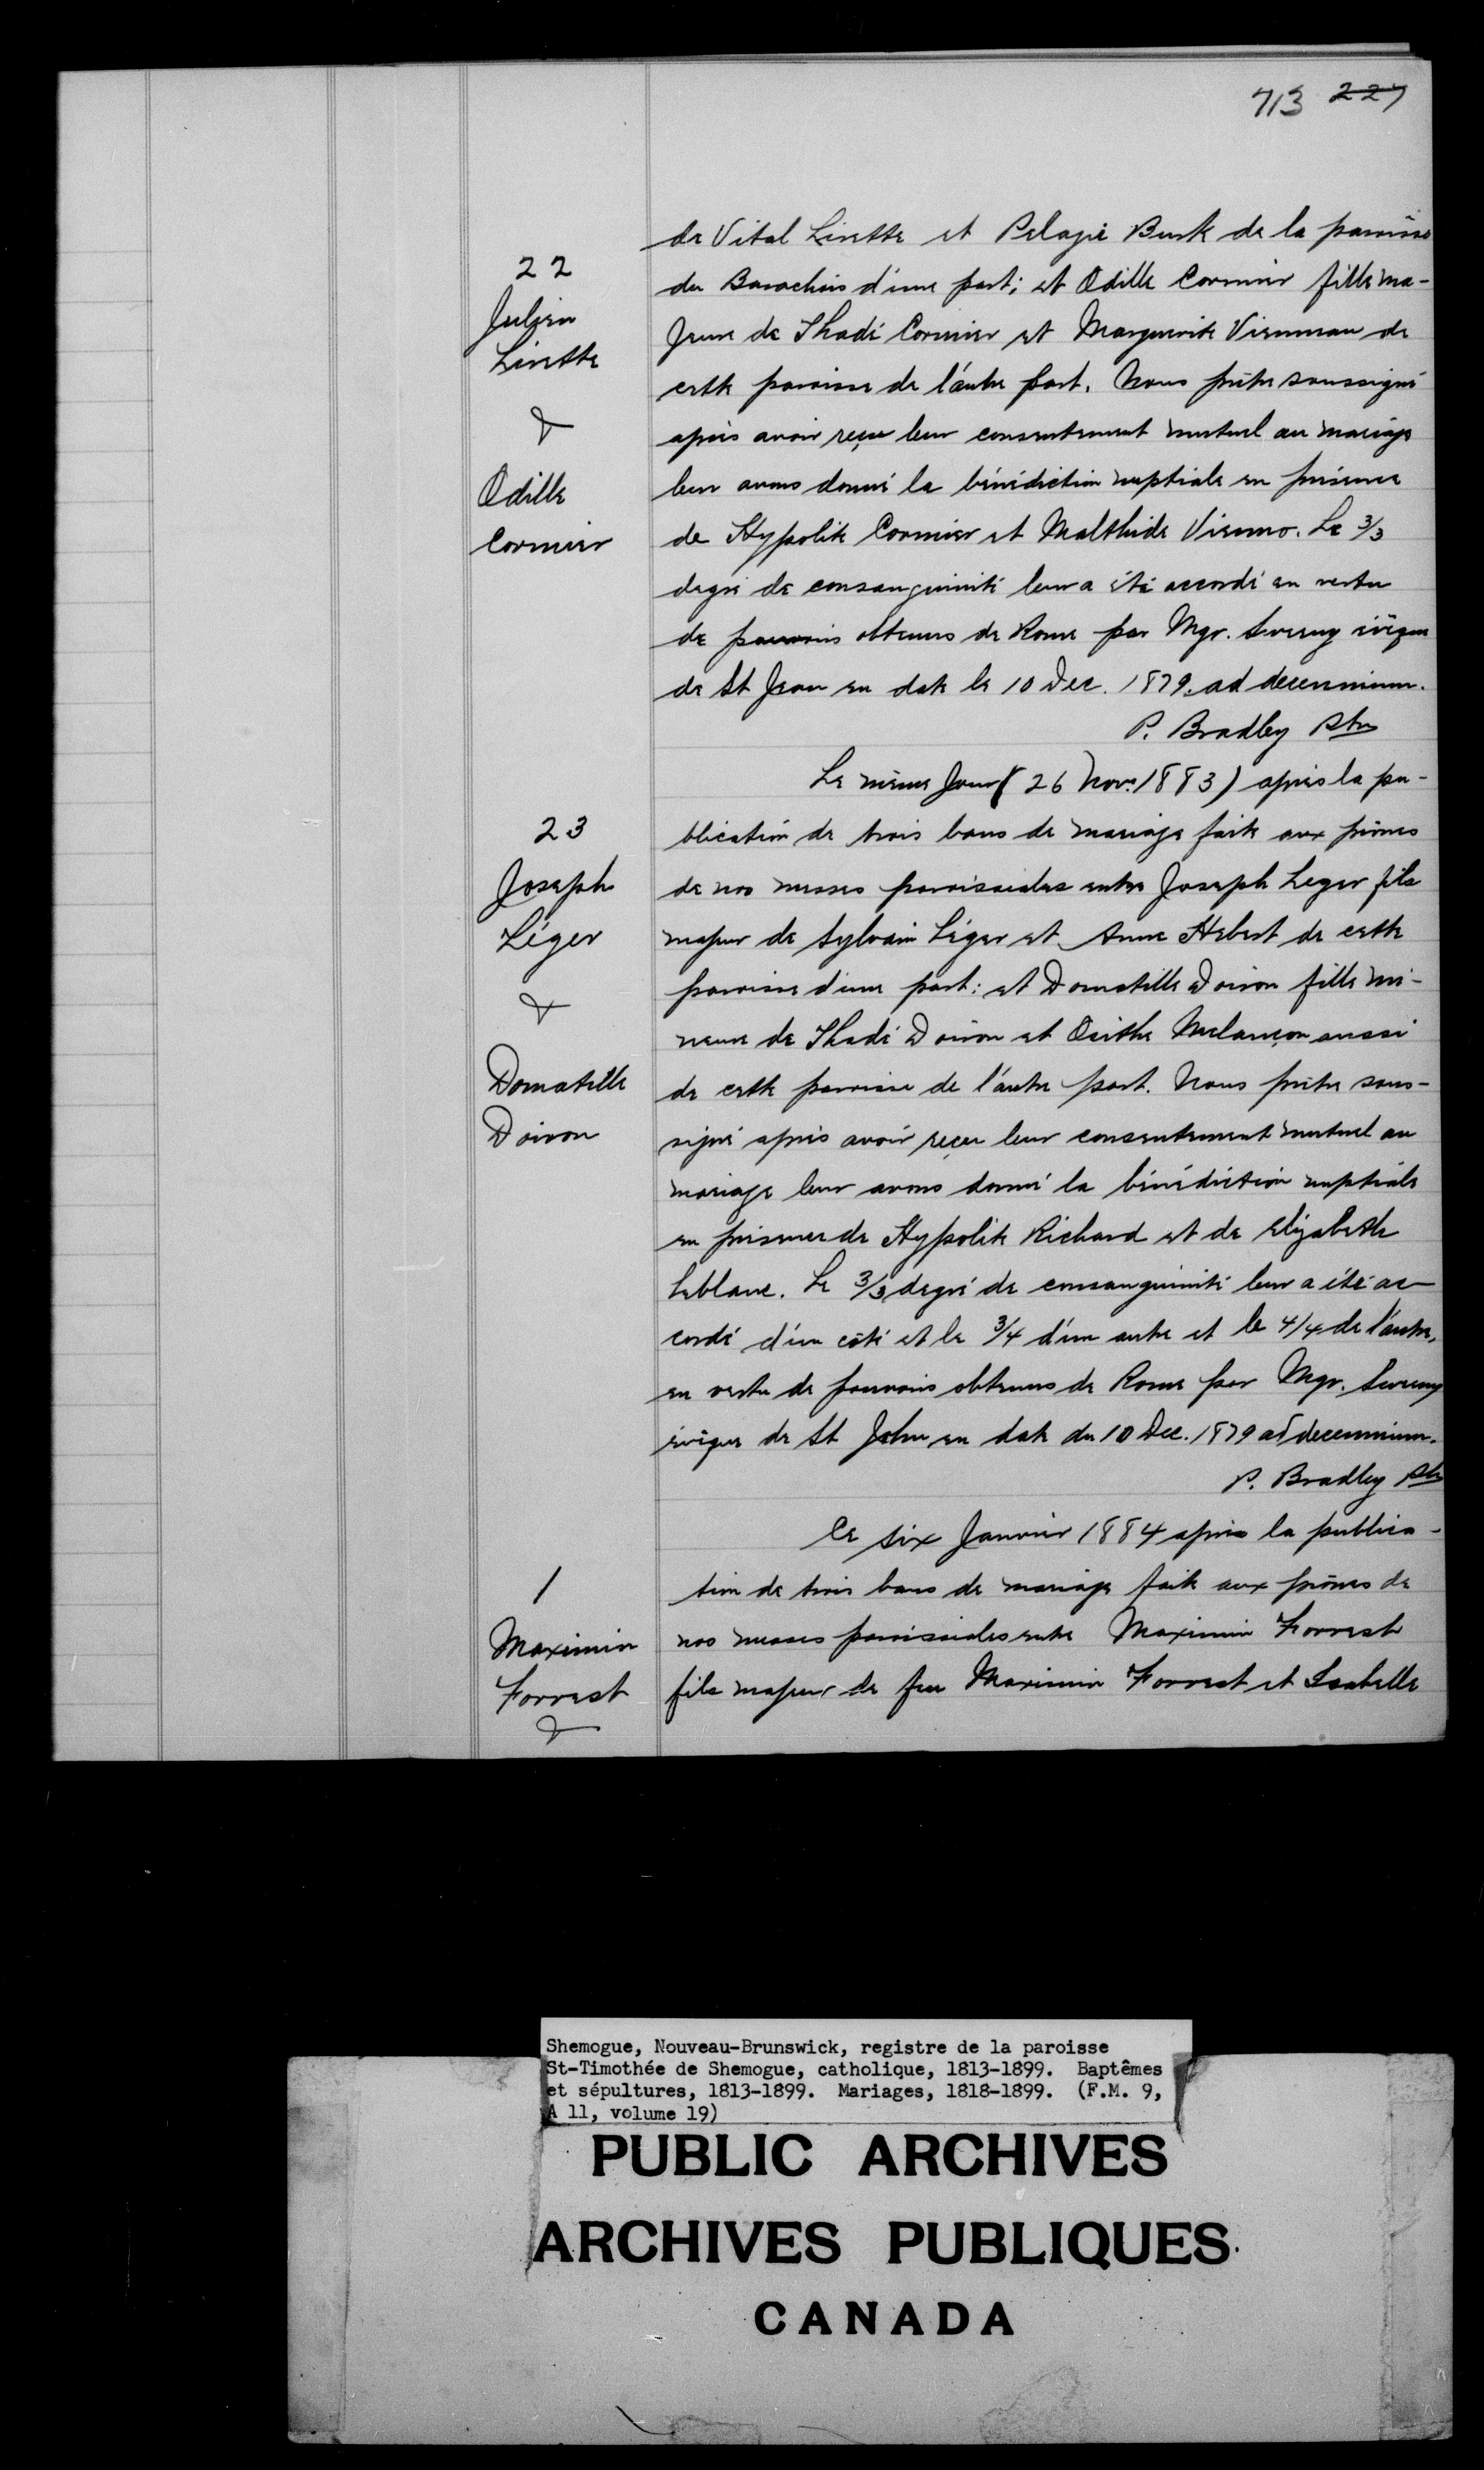 713 227
22
Julien
Linette
&
Odille
Cormier
de Vital Linette et Pelagie Burk de la paroisse
du Barachois d'une part; et Odille Cormier fille ma-
jeure de Thadé Cormier et Marguerite Viennueau de
cette paroisse de l'autre part. Nous prêtre soussigné
après avoir reçu leur consentement mutuel au mariage
leur avons donné la bénédiction nuptiale en présence
de Hypolite Cormier et Malthide Vienno. Le 3/3
degré de consanguinité leur a été accordé en vertu
de pouvoirs obtenus de Rome par Mgr. Sweeny évêque
de St Jean en date le 10 Dec. 1879. ad decennium.
P. Bradley Ptre
23
Joseph
Léger
&
Domatille
Doiron
Le même Jour (26 Nov. 1883) après la pu-
blication de trois bans de mariage faite aux prônes
de nos messes paroissiales entre Joseph Leger fils
majeur de Sylvain Léger et Anne Hebert de cette
paroisse d'une part: et Domatille Doiron fille mi-
neure de Thadé Doiron et Osithe Melançon aussi
de cette paroisse de l'autre part. Nous prêtre sous-
signé après avoir reçu leur consentement mutuel au
mariage leur avons donné la bénédiction nuptiale
en présence de Hypolite Richard et de Elizabeth
Leblanc. Le 3/3 degré de consanguinité leur a été ac-
cordé d'un côté et le 3/4 d'un autre et le 4/4 de l'autre,
en vertu de pouvoirs obtenus de Rome par Mgr. Sweeny
évêque de St John en date du 10 Dec. 1879 ad decennium.
P. Bradley Ptre
1
Maximin
Forrest
&
Ce six Janvier 1884 après la publica-
tion de trois bans de mariage faite aux prônes de
nos messes paroissiales entre Maximin Forrest
fils majeur de feu Maximin Forrest et Isabelle
Shemogue, Nouveau-Brunswick, registre de la paroisse
St-Timothée de Shemogue, catholique, 1813-1899. Baptêmes
et sépultures, 1813-1899. Mariages, 1818-1899. (F.M. 9,
A 11, volume 19)
PUBLIC ARCHIVES
ARCHIVES PUBLIQUES
CANADA